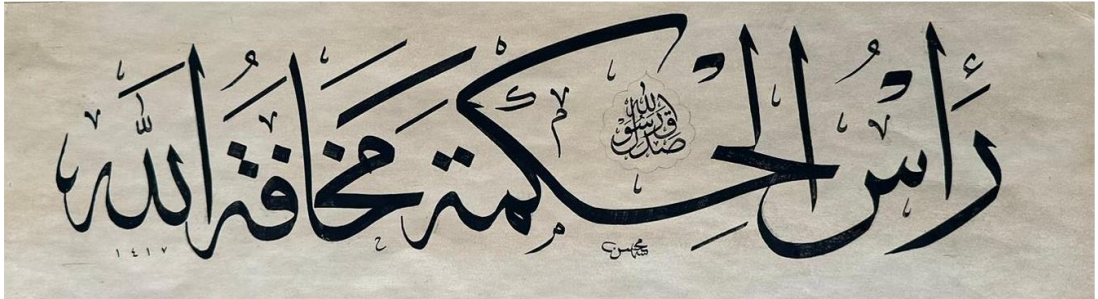 رَأْسُ الْحِكْمَةِ مَخَافَةُ اللَّهِ
صدق رسول الله
محسن
١٤١٧